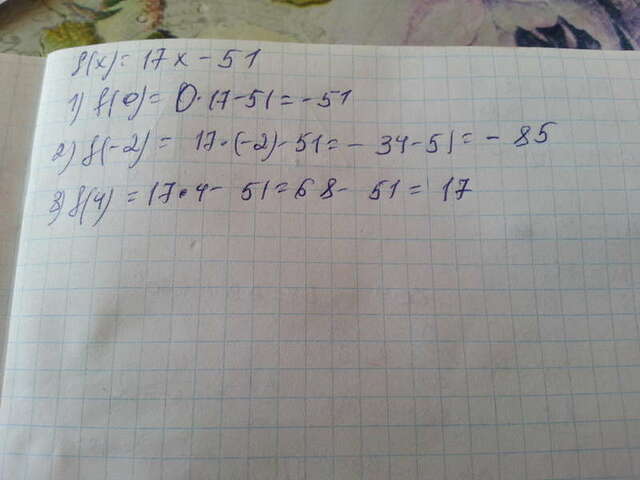 f(x)= 17x-51
1) f(0)= 0·17-51=-51
2) f(-2)= 17·(-2)-51=-34-51=-85
3) f(4)=17·4-51=68-51=17